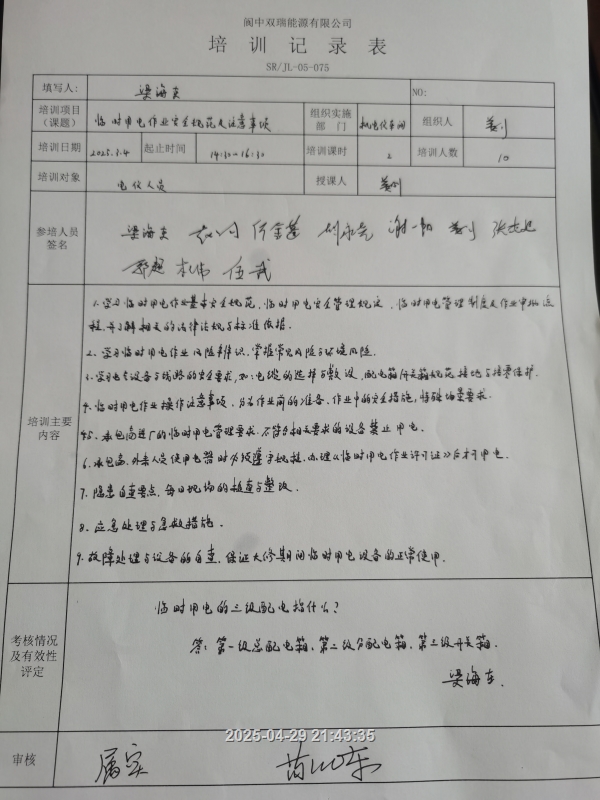 阆中双瑞能源有限公司
培训记录表
SR/JL-05-075
填写人: 梁海东 NO:
培训项目（课题） 临时用电作业安全规范及注意事项 组织实施部门 机电仪车间 组织人
培训日期 2025.3.4 起止时间 14:30-16:30 培训课时 2 培训人数 10
培训对象 电仪人员 授课人
参培人员签名 梁海东 何金莲
伍武
培训主要内容
1.学习临时用电作业基本安全规范,临时用电安全管理规定,临时用电管理制度及作业审批流
程,并了解相关的法律法规与标准依据.
2.学习临时用电作业风险辨识,掌握常见风险与环境风险.
3.学习电气设备与线路的安全要求,如:电缆的选择与敷设,配电箱/开关箱规范接地与接零保护.
4.临时用电作业操作注意事项,分为作业前的准备、作业中的安全措施,特殊场景要求.
5.承包商进厂的临时用电管理要求,不符合相关要求的设备禁止用电.
6.承包商、外来人员使用电器时必须遵守规程,办理《临时用电作业许可证》后才可用电.
7.隐患自查要点,每日现场的检查与整改.
8.应急处理与急救措施.
9.故障处理与设备的自查,保证大修期间临时用电设备的正常使用.
考核情况及有效性评定
临时用电的三级配电指什么?
答:第一级总配电箱、第二级分配电箱、第三级开关箱.
梁海东.
2025-04-29 21:43:35
审核 属实